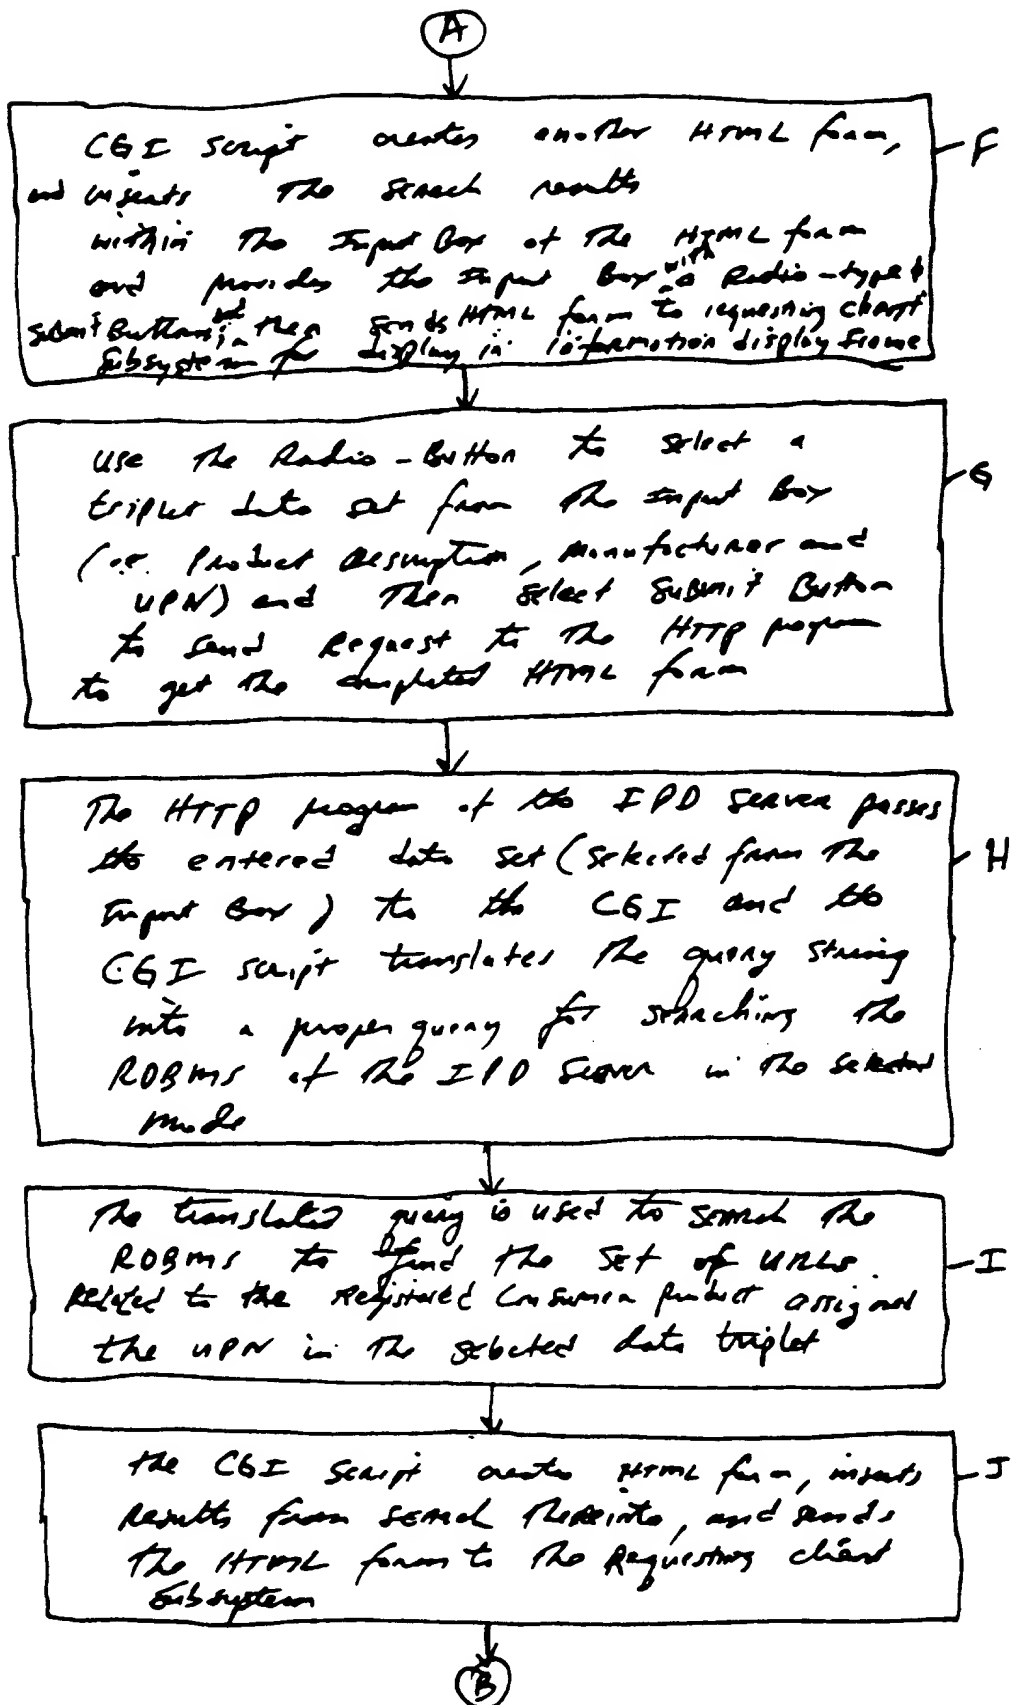 A
CGI script creates another HTML form,
and inserts the search results
within the Input Box of the HTML form
and provides the Input Box with a Radio-type &
submit Buttons, and then sends HTML form to requesting client
subsystem for display in information display frame
F
use the Radio-Button to select a
triplet data set from the Input Box
(i.e. Product Description, Manufacturer and
UPN) and then select Submit Button
to send Request to the HTTP program
to get the completed HTML form
G
The HTTP program of the IPD Server passes
the entered data set (selected from the
Input Box) to the CGI and the
CGI script translates the query string
into a proper query for searching the
RDBMS of the IPD Server in the selected
mode
H
The translated query is used to search the
RDBMS to find the set of URLs
Related to the registered Consumer product assigned
the UPN in the selected data triplet
I
the CGI script creates HTML form, inserts
Results from search thereinto, and sends
the HTML form to the Requesting client
Subsystem
J
B